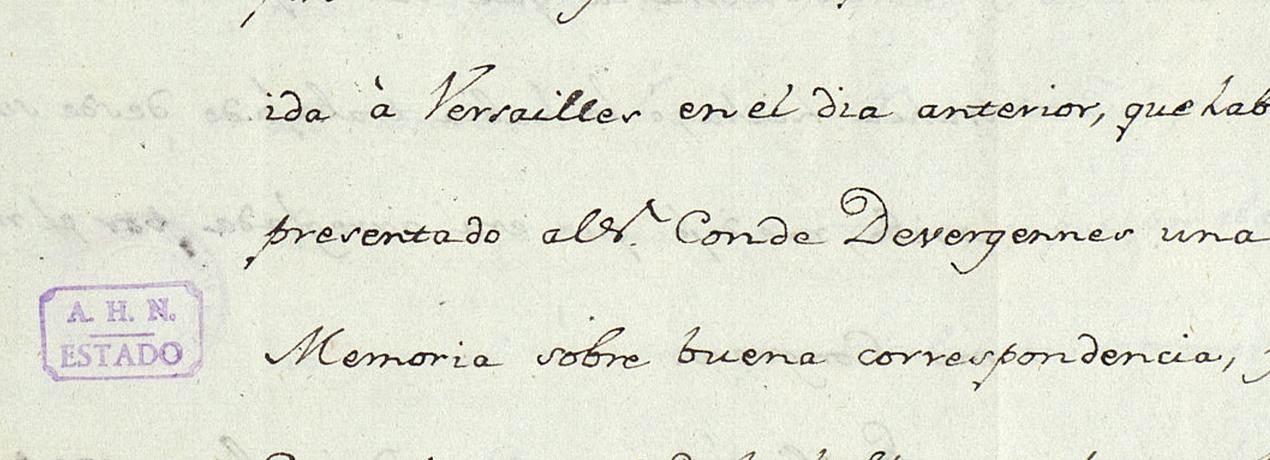 ida à Versailles en el dia anterior, que hab
presentado al Sr. Conde Devergennes una
A. H. N.
ESTADO
Memoria sobre buena correspondencia,